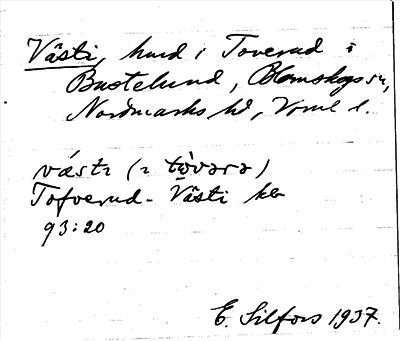 Västi, hmd i Toverud i
Bustelund, Blomskogs sn,
Nordmarks hd, Vrml l.
västɩ (ɩ tὼvərə)
Tofverud - Västi kb
93:20
E. Silfors 1937.